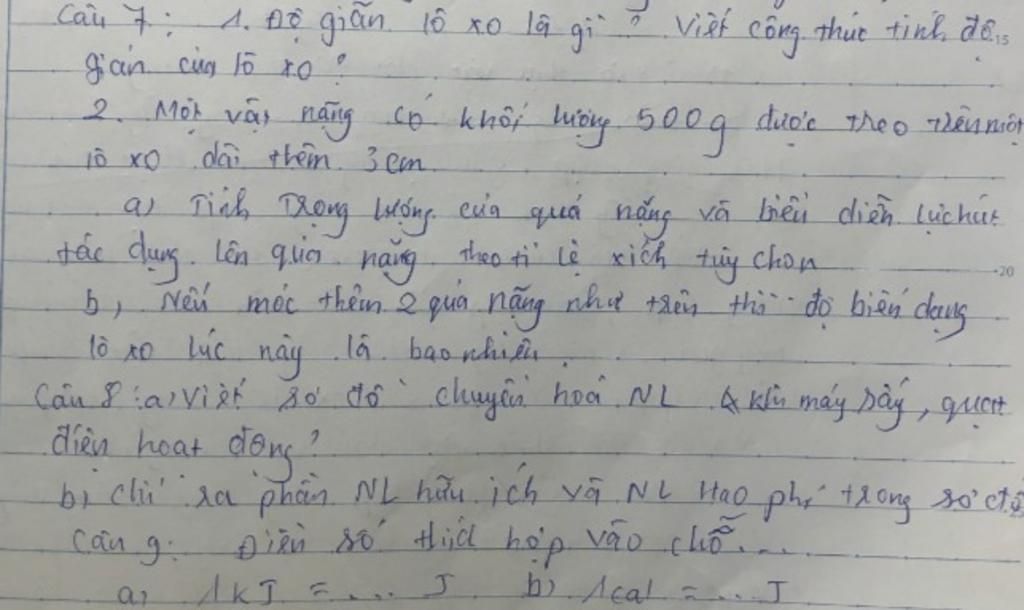 Câu 7: 1. Độ giãn lò xo là gì? Viết công thức tính độ
giãn của lò xo?
2. Một vật nặng có khối lượng 500g được treo trên một
lò xo dài thêm 3cm
a, Tính Trọng lượng của quả nặng và biểu diễn lực hút
tác dụng lên quả nặng theo tỉ lệ xích tùy chọn
b, Nếu móc thêm 2 quả nặng như trên thì độ biến dạng
lò xo lúc này là bao nhiêu.
Câu 8: a, Viết sơ đồ chuyển hoá NL khi máy sấy, quạt
điện hoạt động?
b, chỉ ra phần NL hữu ích và NL Hao phí trong sơ đồ
Câu 9: Điền số thích hợp vào chỗ....
a, 1kJ = ... J b, 1cal = ... J
15
20